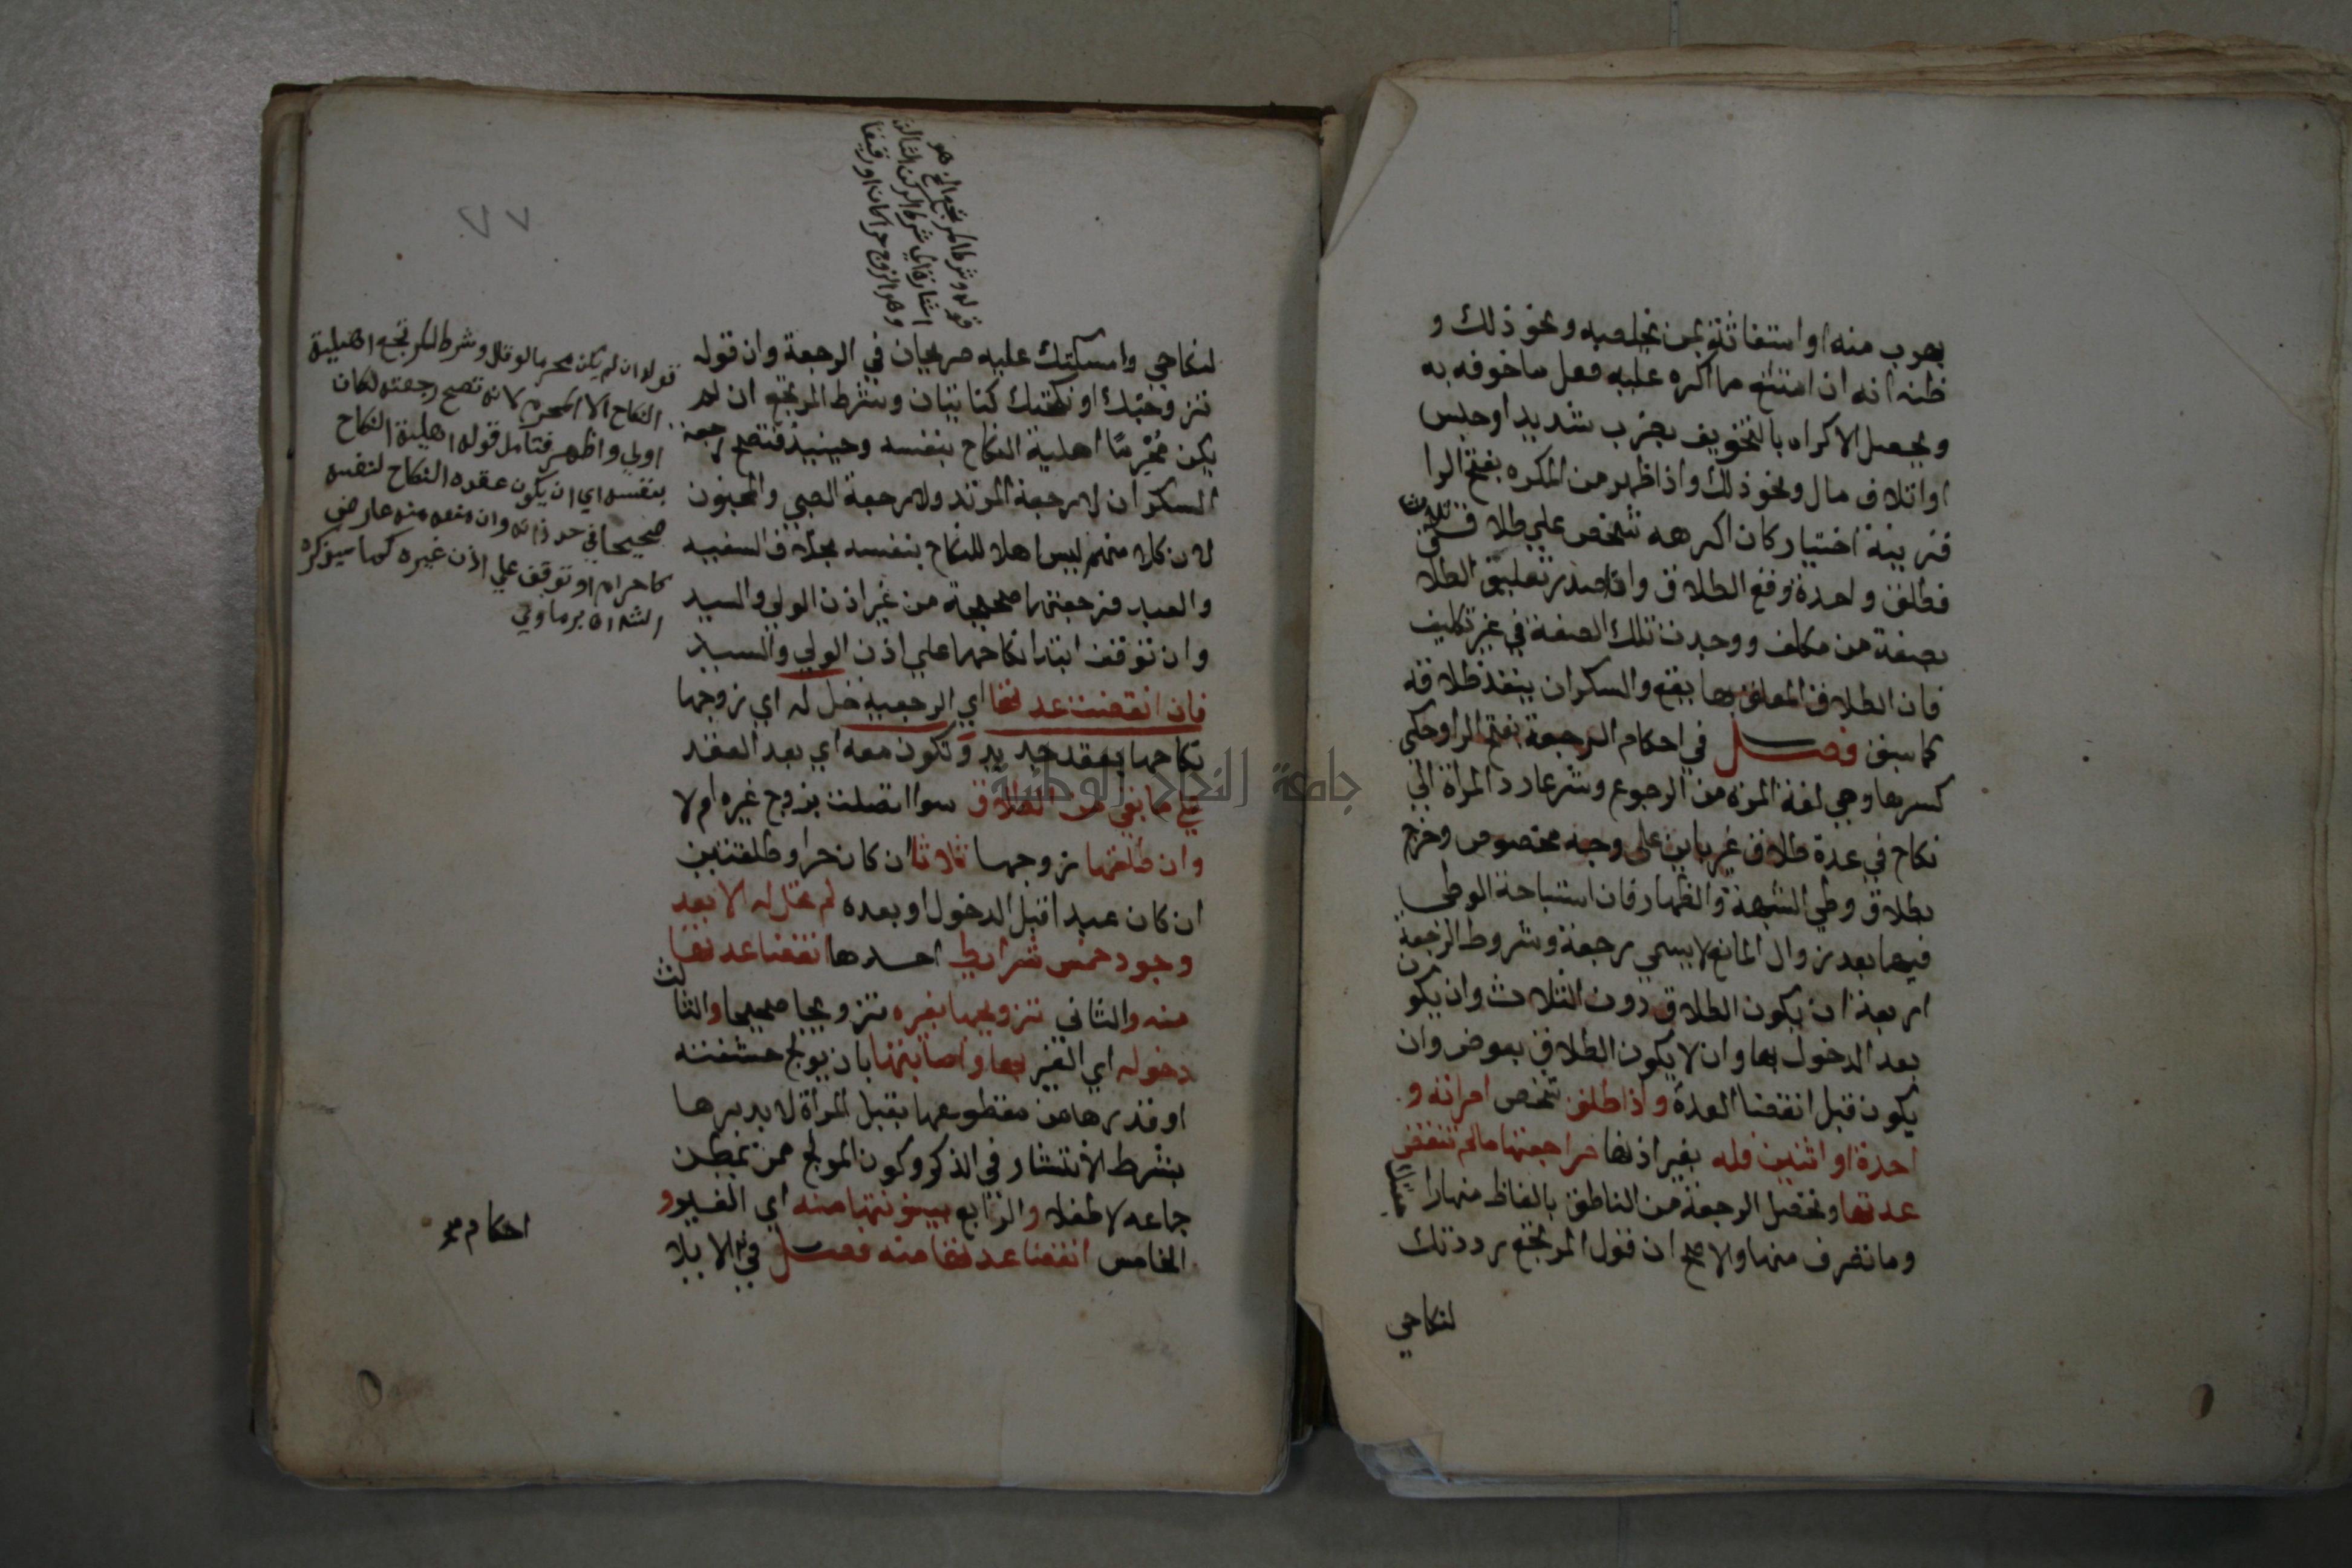 بهرب منه او استغاثته بمن يخلصه ونحو ذلك و
ظنه انه ان امتنع مما اكره عليه فعل ما خوفه به
ويحصل الاكراه بالتخويف بضرب شديد او حبس
او اتلاف مال ونحو ذلك واذا ظهر من المكره بفتح الرا
قرينة اختيار كان اكرهه شخص علي طلاق ثلاث
فطلق واحدة وقع الطلاق واذا صدر تعليق الطلا
بصفة من مكلف ووجدت تلك الصفة في غير تكليف
فان الطلاق المعلق بها يقع والسكران ينفذ طلاقه
كما سبق فصل في احكام الرجعة بفتح الرا وحكي
كسرها وهي لغة المرة من الرجوع وشرعا رد المراة الي
نكاح في عدة طلاق غير باين على وجه مخصوص وخرج
بطلاق وطي الشبهة والظهار فان استباحة الوطي
فيهما بعد زوال المانع لا يسمي رجعة وشروط الرجعة
اربعة ان يكون الطلاق دون الثلاث وان يكون
بعد الدخول بها وان لا يكون الطلاق بعوض وان
يكون قبل انقضا العدة واذا طلق شخص امراته و
احدة او اثنين فله بغير اذنها مراجعتها مالم تنقض
عدتها وتحصل الرجعة من الناطق بالفاظ منها راجعتك
وما تصرف منها والاصح ان قول المرتجع رددتك
لنكاحي
قوله وشرط المرتجع الخ هو
اشارة الي شرط الركن الثالث
وهو الزوج حرا كان او رقيقا
٧٧
لنكاحي وامسكتك عليه صريحان في الرجعة وان قوله
تزوجتك او نكحتك كنايتان وشرط المرتجع ان لم
يكن مُحْرِمًا اهلية النكاح بنفسه وحينيذ فتصح رجعة
السكران لا رجعة المرتد ولا رجعة الصبي والمجنون
لان كلا منهم ليس اهلا للنكاح بنفسه بخلاف السفيه
والعبد فرجعتهما صحيحة من غير اذن الولي والسيد
وان توقف ابتدا نكاحهما علي اذن الولي والسيد
فان انقضت عدتها اي الرجعية حل له اي زوجها
نكاحها بعقد جديد وتكون معه اي بعد العقد
علي ما بقي من الطلاق سوا اتصلت بزوج غيره ام لا
وان طلقها زوجها ثلاثا ان كان حرا وطلقتين
ان كان عبدا قبل الدخول او بعده لم تحل له الا بعد
وجود خمس شرايط احدها انقضا عدتها
منه والثاني تزويجها بغيره تزويجا صحيحا والثالث
دخوله اي الغير بها واصابتها بان يولج حشفته
او قدرها من مقطوعها بقبل المراة لا بدبرها
بشرط الانتشار في الذكر وكون المولج ممن يمكن
جماعه لا طفلا والرابع بينونتها منه اي الغير و
الخامس انقضا عدتها منه فصل في الايلا
احكام
قوله ان لم يكن محرما لو قال وشرط المرتجع اهلية
النكاح الا المحرم لانه تصح رجعته لكان
اولي واظهر فتامل قوله اهلية النكاح
بنفسه اي ان يكون عقده النكاح لنفسه
صحيحا في حد ذاته وان منعه منه عارض
كاحرام او توقف علي اذن غيره كما سيذكره
الش اه برماوي
جامعة النجاح الوطنية